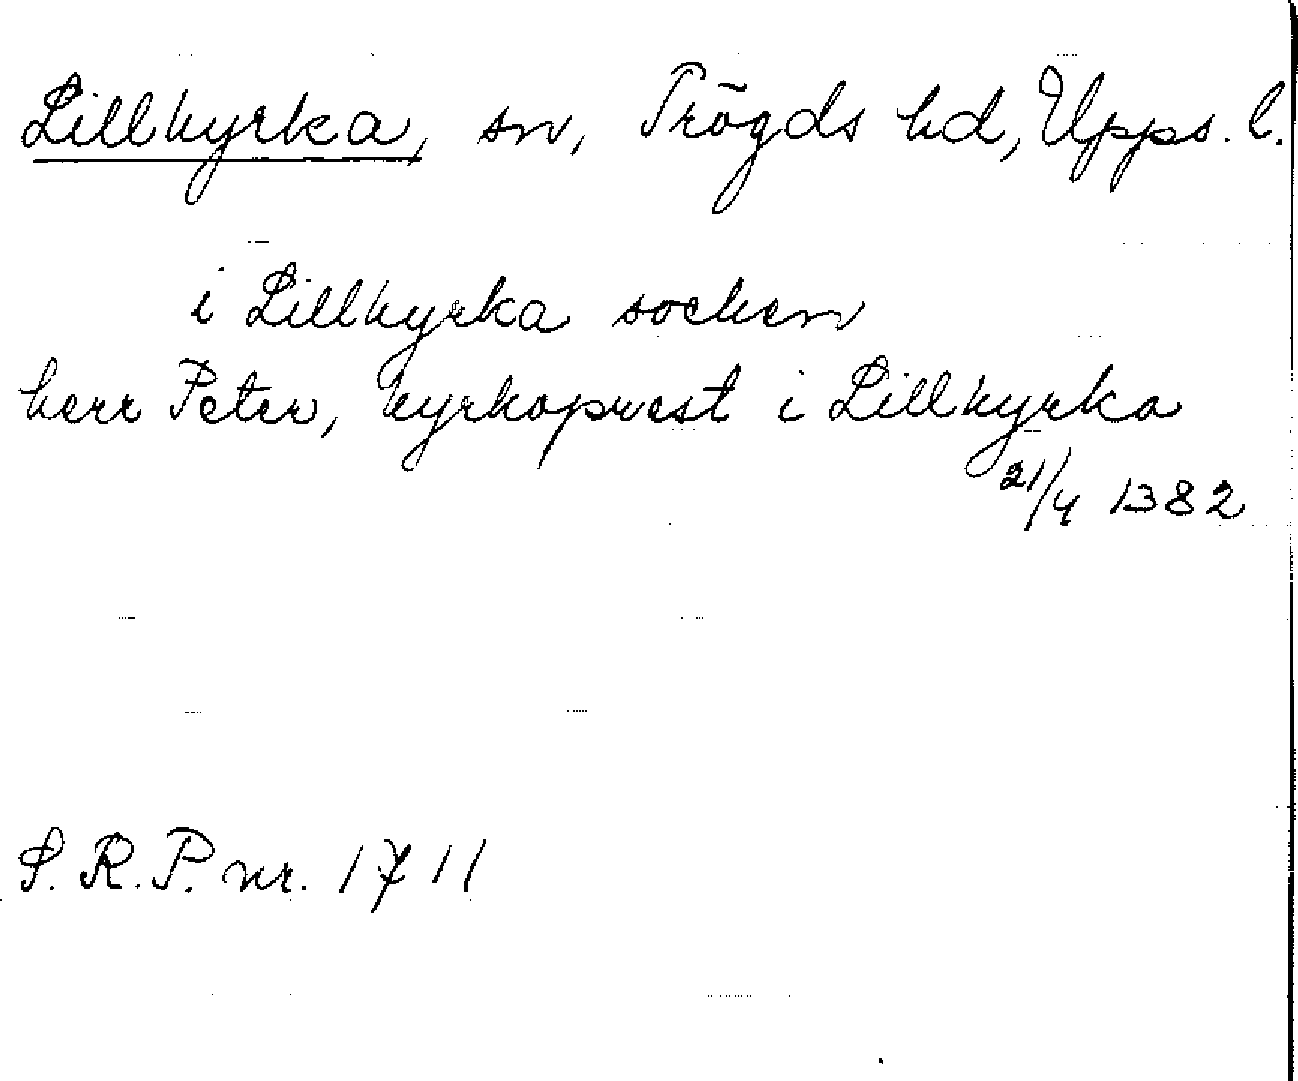 Lillkyrka, sn, Trögds hd, Upps. l.
i Lillkyrka socken
herr Peter, kyrkoprest i Lillkyrka
21/4 1382
S. R. P. nr. 1711